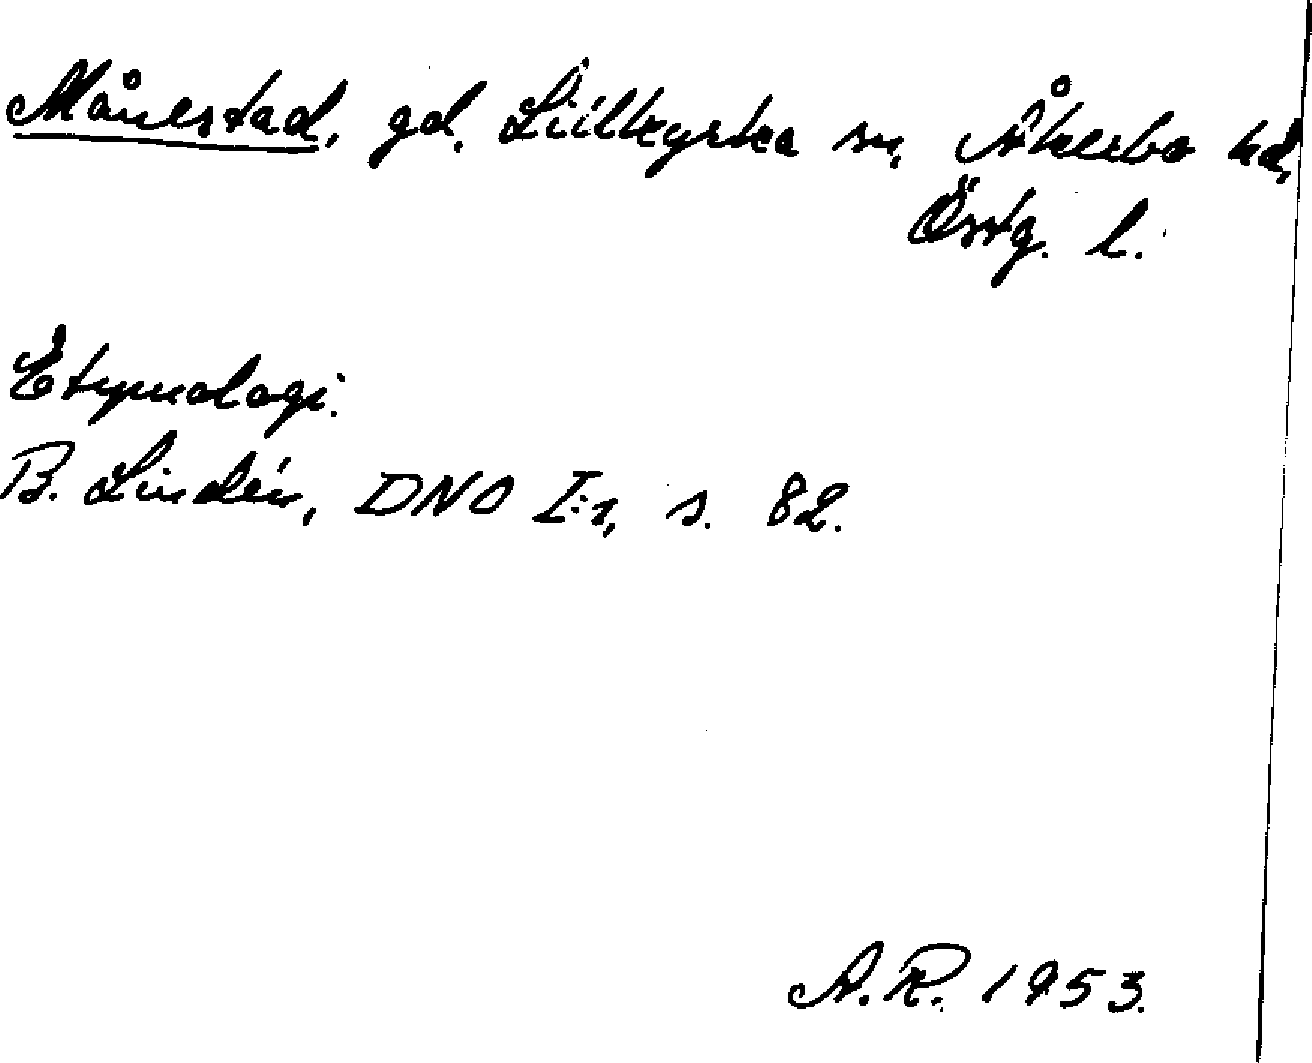 Månestad, gd, Lillkyrka sn, Åkerbo hd,
Östg. l.
Etymologi.
B. Lindén, DNO I:1, s. 82.
A.R. 1953.